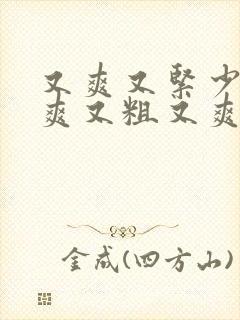 又爽又紧少
爽又粗又爽
金成(四方山)